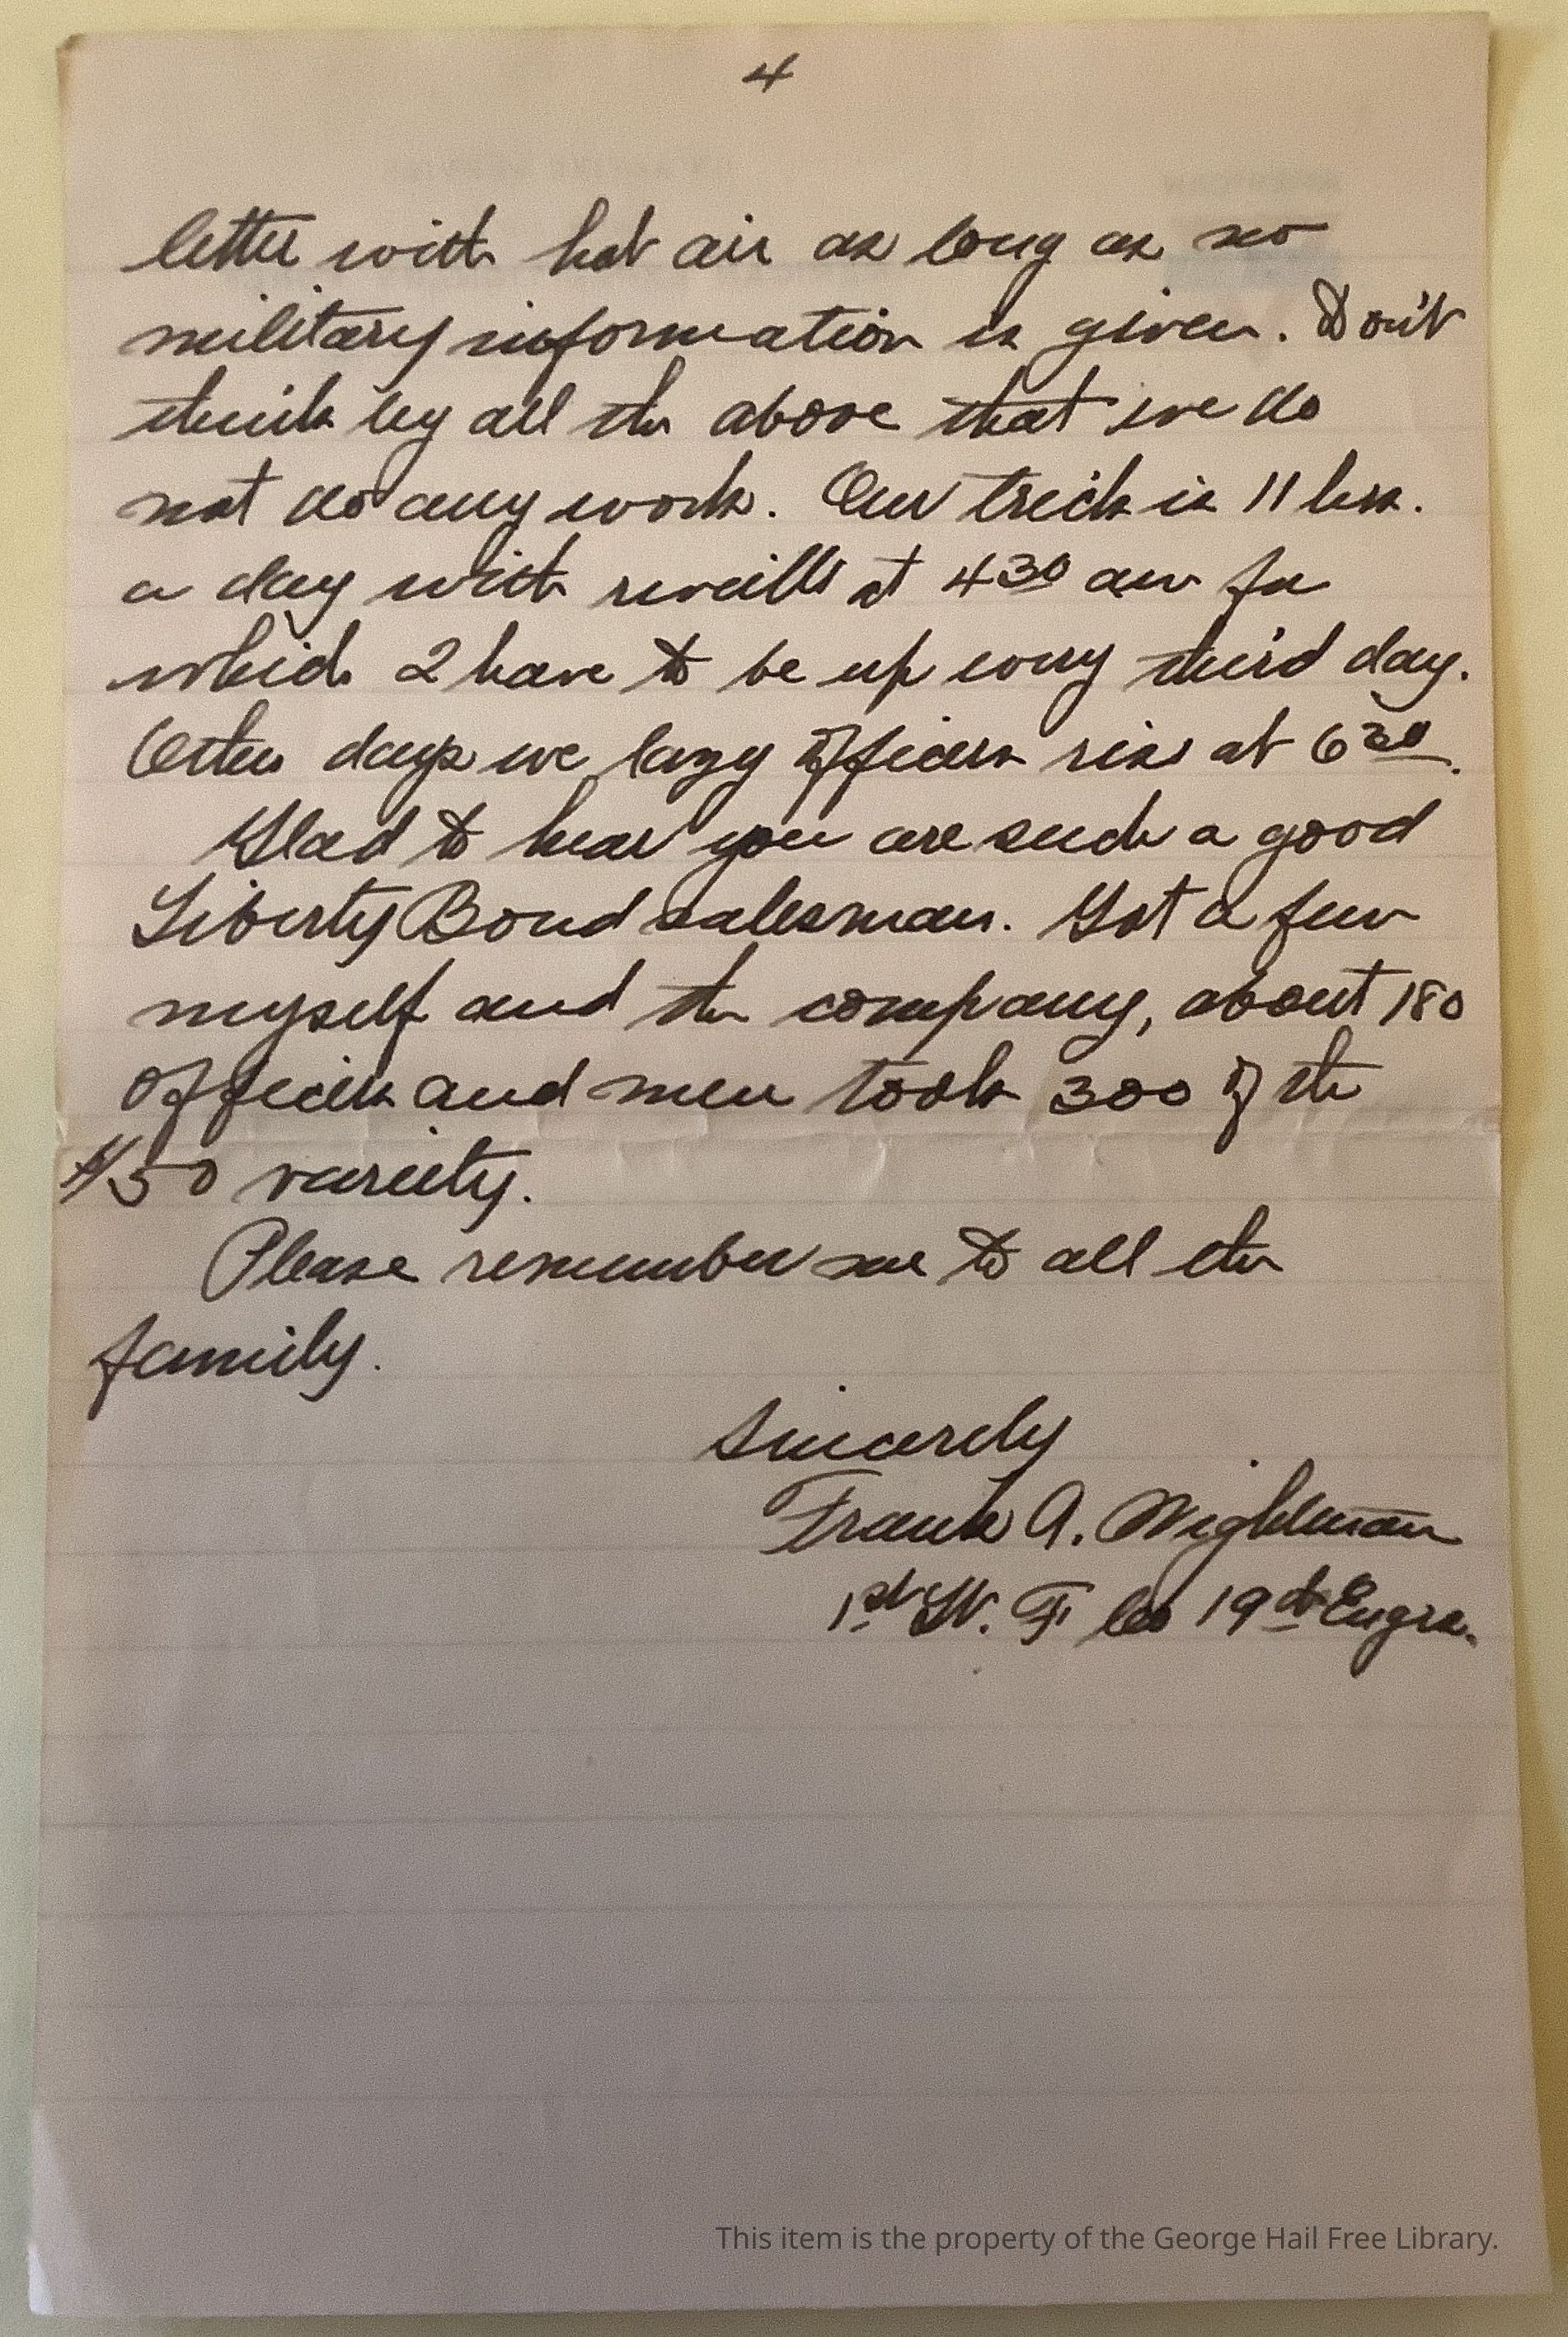 4
letter with hot air as long as no
military information is given. Don't
think by all the above that we do
not do any work. Our trick is 11 hrs.
a day with reveille at 4 30 am for
which I have to be up every third day.
Other days we lazy officers rise at 6 30.
Glad to hear you are such a good
Liberty Bond salesman. Got a few
myself and the company, about 180
officers and men took 300 of the
$50 variety.
Please remember me to all the
family.
Sincerely
Frank A. Wightman
1st Lt. F Co 19th Engrs.
This item is the property of the George Hail Free Library.